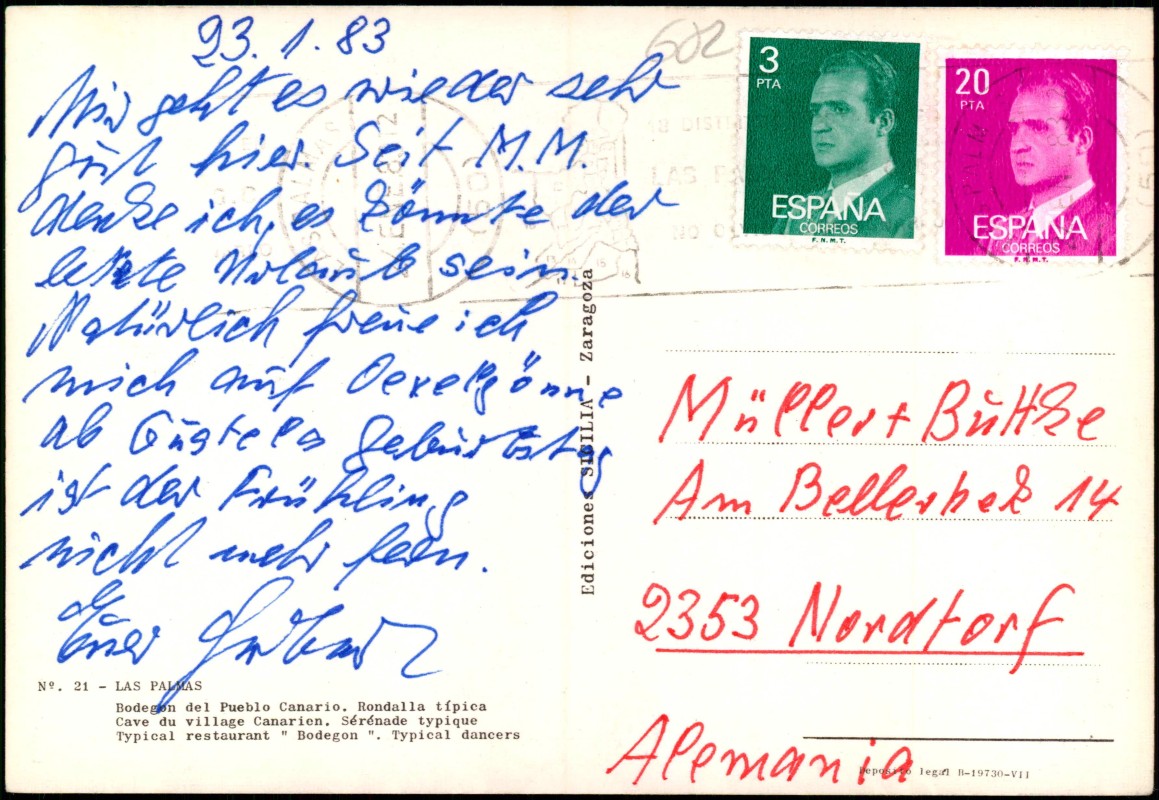 23.1.83
Mir geht es wieder sehr
gut hier. Seit M.M.
denke ich, es könnte der
letzte Urlaub sein.
Natürlich freue ich
mich auf Oevelgönne
ab Gustels Geburtstag
ist der Frühling
nicht mehr fern.
Euer
Nº. 21 - LAS PALMAS
Bodegón del Pueblo Canario. Rondalla típica
Cave du village Canarien. Sérénade typique
Typical restaurant " Bodegon ". Typical dancers
Ediciones SICILIA - Zaragoza
602
3
PTA
ESPAÑA
CORREOS
F.N.M.T.
20
PTA
ESPAÑA
CORREOS
F.N.M.T.
Müller + Buttke
Am Bellerbek 14
2353 Nordtorf
Alemania
Deposito legal B-19730-VII